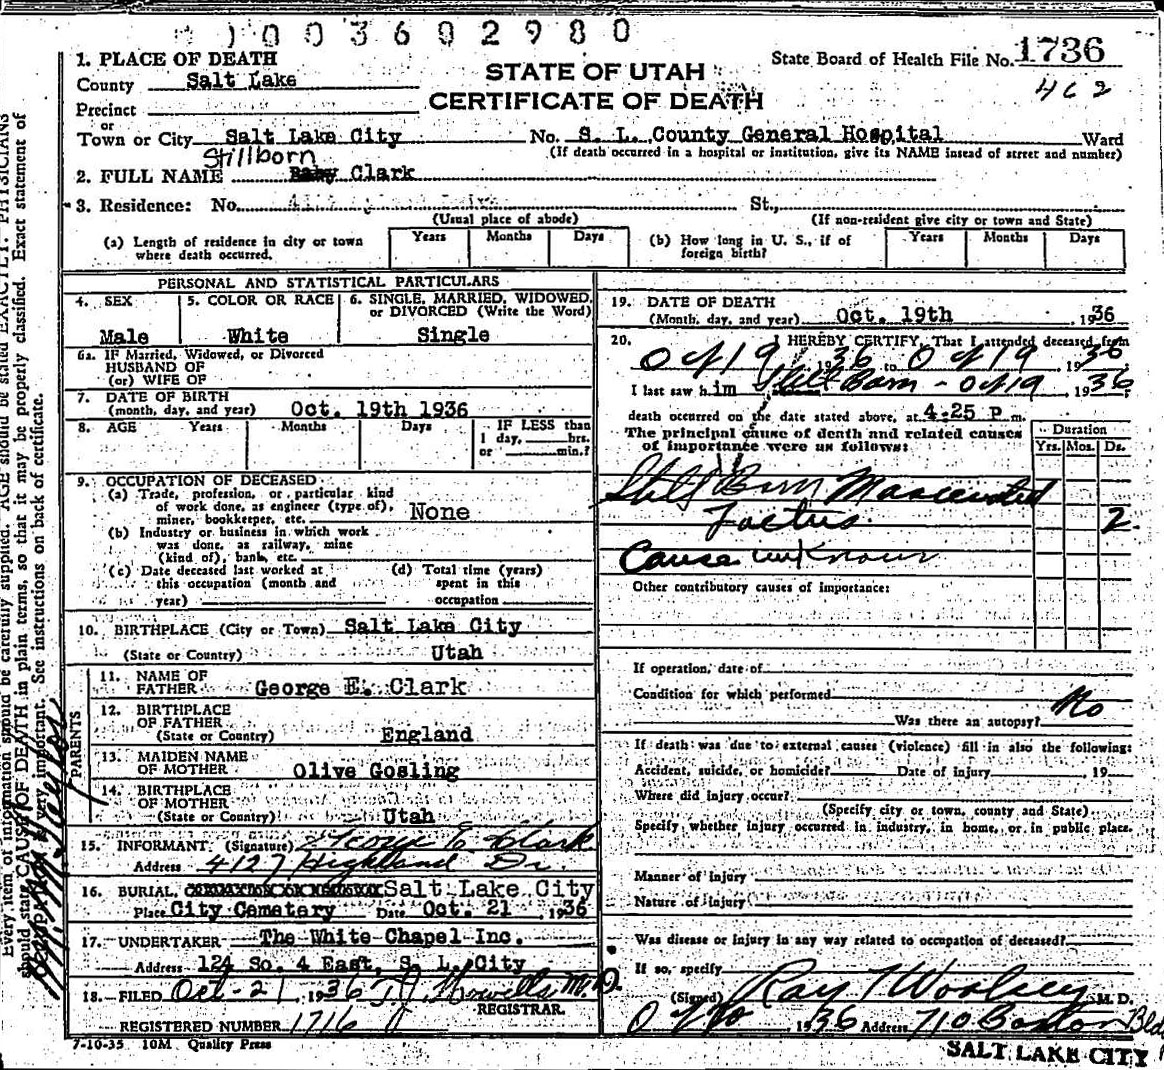 1003602980
1. PLACE OF DEATH
County Salt Lake
Precinct
or
Town or City Salt Lake City
STATE OF UTAH
CERTIFICATE OF DEATH
State Board of Health File No. 1736
462
No. S. L. County General Hospital Ward
(If death occurred in a hospital or institution, give its NAME insead of strret and number)
Stillborn
2. FULL NAME Baby Clark
3. Residence: No. St.,
(Usual place of abode) (If non-resident give city or town and State)
(a) Length of residence in city or town where death occurred. Years Months Days
(b) How long in U. S., if of foreign birth? Years Months Days
PERSONAL AND STATISTICAL PARTICULARS
4. SEX 5. COLOR OR RACE 6. SINGLE, MARRIED, WIDOWED, or DIVORCED (Write the Word)
Male White Single
6a. IF Married, Widowed, or Divorced
HUSBAND OF
(or) WIFE OF
7. DATE OF BIRTH
(month, day, and year) Oct. 19th 1936
8. AGE Years Months Days IF LESS than
1 day, hrs.
or min.?
9. OCCUPATION OF DECEASED
(a) Trade, profession, or particular kind
of work done, as engineer (type of),
miner, bookkeeper, etc. None
(b) Industry or business in which work
was done, as railway, mine
(kind of), bank, etc.
(c) Date deceased last worked at
this occupation (month and
year)
(d) Total time (years)
spent in this
occupation
10. BIRTHPLACE (City or Town) Salt Lake City
(State or Country) Utah
PARENTS
11. NAME OF
FATHER George E. Clark
12. BIRTHPLACE
OF FATHER
(State or Country) England
13. MAIDEN NAME
OF MOTHER Olive Gosling
14. BIRTHPLACE
OF MOTHER
(State or Country) Utah
15. INFORMANT (Signature) George E. Clark
Address 4127 Highland Dr.
16. BURIAL, Salt Lake City
Place City Cemetery Date Oct. 21, 1936
17. UNDERTAKER The White Chapel Inc.
Address 124 So. 4 East, S. L. City
18. FILED Oct-21, 1936 Howells M.D.
REGISTRAR.
REGISTERED NUMBER 1716
7-10-35 10M Quality Press
19. DATE OF DEATH
(Month, day, and year) Oct. 19th, 1936
20. I HEREBY CERTIFY, That I attended deceased from
Oct 19 1936 to Oct 19 1936
I last saw him Still Born - Oct 19, 1936
death occurred on the date stated above, at 4:25 P m.
The principal cause of death and related causes
of importance were as follows:
Duration
Yrs. Mos. Ds.
Still Born Macerated
Foetus. 2.
Cause unknown
Other contributory causes of importance:
If operation, date of
Condition for which performed
Was there an autopsy? No
If death was due to external causes (violence) fill in also the following:
Accident, suicide, or homicide? Date of injury, 19
Where did injury occur?
(Specify city or town, county and State)
Specify whether injury occurred in industry, in home, or in public place.
Manner of injury
Nature of injury
Was disease or injury in any way related to occupation of deceased?
If so, specify
(Signed) Ray T Woolsey M. D.
Oct 20 1936 Address 710 Boston Bldg
SALT LAKE CITY
Every item of information should be carefully supplied. AGE should be stated EXACTLY. PHYSICIANS
should state CAUSE OF DEATH in plain terms, so that it may be properly classified. Exact statement of
OCCUPATION is very important. See instructions on back of certificate.